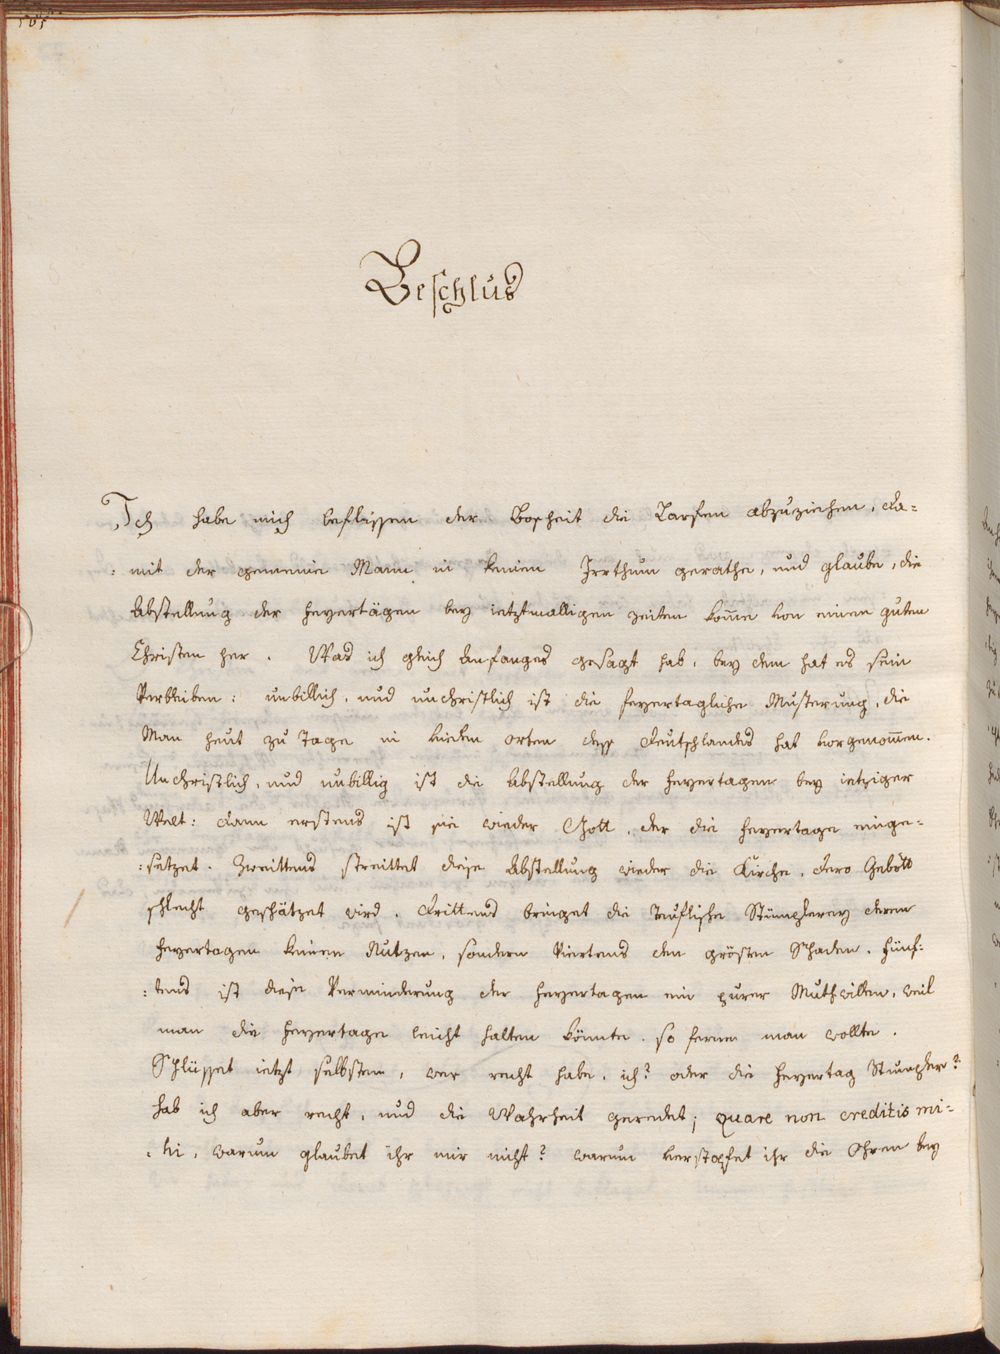 Beschlus
Ich habe mich beflissen der Bosheit die Larfen abzuziehen, da=
:mit der gemeine Mann in keinen Irrthum gerathe, und glaube, die
Abstellung der feyertägen bey ietztmalligen zeiten kom̅e von einen guten
Christen her. Was ich gleich Anfanges gesagt hab, bey dem hat es sein
Verbleiben: unbillich, und unchristlich ist die feyertagliche Musterung, die
Man heut zu Tage in vielen orten deß Deutschlandes hat vorgenom̅en.
Unchristlich, und unbillig ist die Abstellung der feyertagen bey ietziger
Welt: dann erstens ist sie wieder Gott, der die feyertage einge=
:setzet. Zweittens streittet diese Abstellung wieder die Kirche, dero Gebott
schlecht geschätzet wird. Drittens bringet die Teuflische Stümplerey deren
feyertagen keinen Nutzen, sondern Viertens den grösten Schaden. fünf=
:tens ist diese Verminderung der feyertagen ein purer Muthwillen, weil
man die feyertage leicht halten könnte, so ferne man wollte.
Schlüsset ietzt selbsten, wer recht habe, ich? oder die feyertag Stümpler?
hab ich aber recht, und die Wahrheit geredet; quare non creditis mi=
:hi, warum glaubet ihr mir nicht? warum verstopfet ihr die Ohren bey